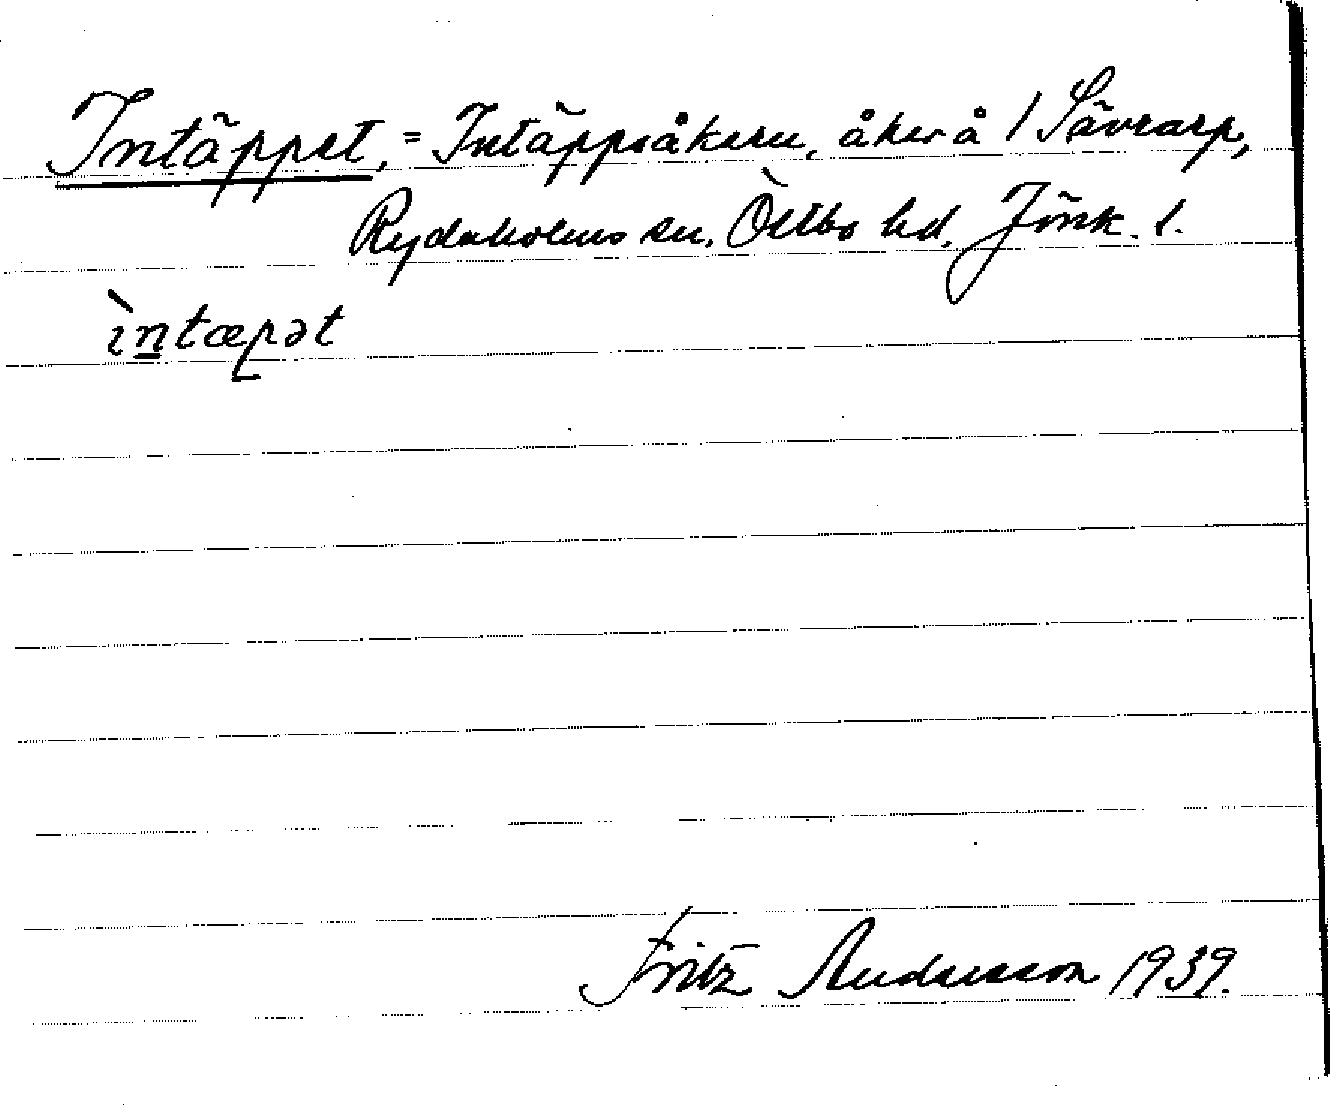 Intäppet, = Intäppsåkern, åker å / Sävrarp,
Rydaholms sn, Östbo hd, Jönk. l.
ìntæpət
Fritz Andersson 1939.